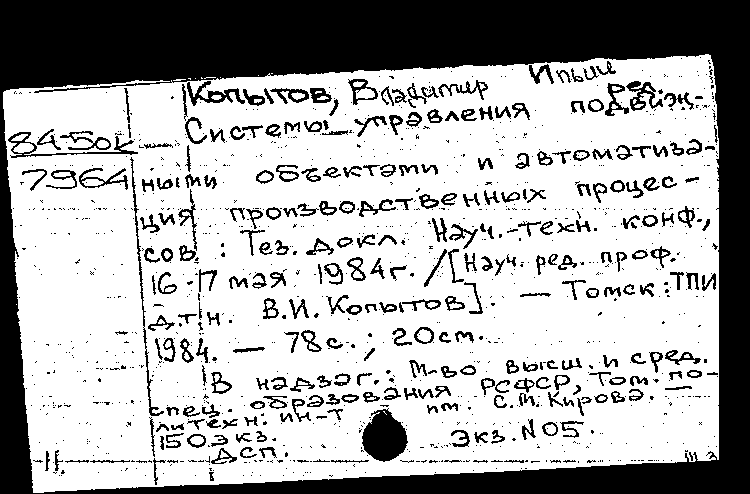 Копытов, Владимир Ильич ред.
84-50к
Системы управления подвиж-
7964
ными объектами и автоматиза-
ция производственных процес-
сов : Тез. докл. Науч.-техн. конф.,
16-17 мая 1984г. / [Науч. ред. проф.
д.т.н. В.И. Копытов]. — Томск : ТПИ
1984. — 78с. ; 20см.
В надзаг.: М-во высш. и сред.
спец. образования РСФСР, Том. по-
литехн. ин-т им. С.М. Кирова. —
150 экз.
Экз. N05.
ДСП.